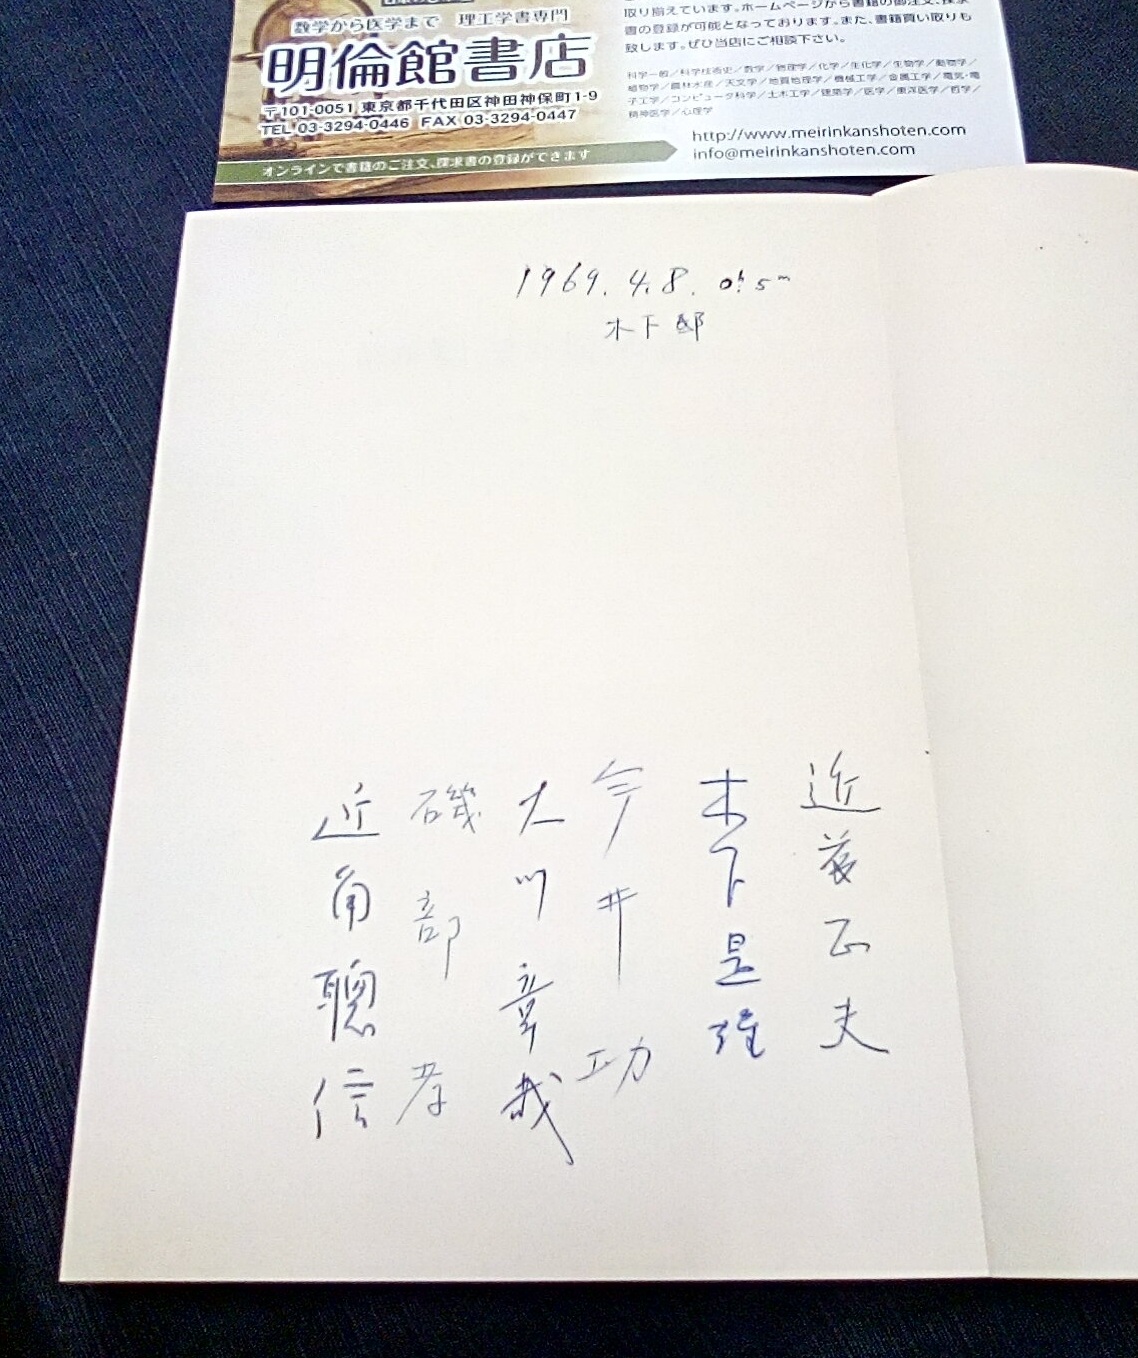 数学から医学まで 理工学書専門
明倫館書店
〒101-0051 東京都千代田区神田神保町1-9
TEL 03-3294-0446 FAX 03-3294-0447
オンラインで書籍のご注文、探求書の登録ができます
取り揃えています。ホームページから書籍の御注文、探求
書の登録が可能となっております。また、書籍買い取りも
致します。ぜひ当店にご相談下さい。
科学一般／科学技術史／数学／物理学／化学／生化学／生物学／動物学／
植物学／農林水産／天文学／地質地理学／機械工学／金属工学／電気・電
子工学／コンピュータ科学／土木工学／建築学／医学／東洋医学／哲学／
精神医学／心理学
http://www.meirinkanshoten.com
info@meirinkanshoten.com
1969.4.8. 0h. 5m
木下邸
近藤正夫
木下是雄
今井功
大川章哉
磯部孝
近角聰信